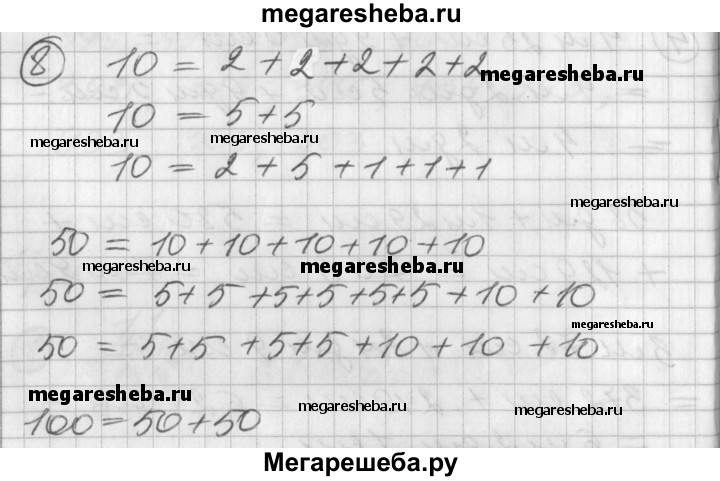 megaresheba.ru
8 10 = 2 + 2 + 2 + 2 + 2
megaresheba.ru
10 = 5 + 5
megaresheba.ru megaresheba.ru
10 = 2 + 5 + 1 + 1 + 1
megaresheba.ru
50 = 10 + 10 + 10 + 10 + 10
megaresheba.ru megaresheba.ru
50 = 5 + 5 + 5 + 5 + 5 + 5 + 10 + 10
megaresheba.ru
50 = 5 + 5 + 5 + 5 + 10 + 10 + 10
megaresheba.ru megaresheba.ru megaresheba.ru
100 = 50 + 50
Мегарешеба.ру